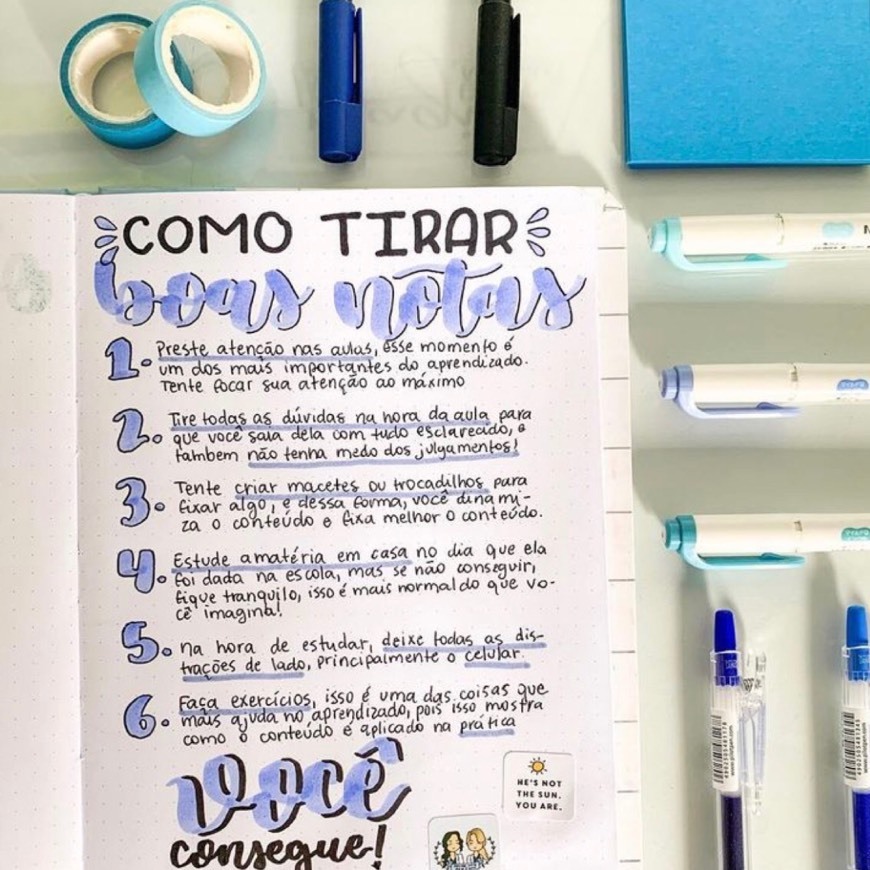 COMO TIRAR
boas notas
1. Preste atenção nas aulas, esse momento é
um dos mais importantes do aprendizado.
Tente focar sua atenção ao máximo
2. Tire todas as dúvidas na hora da aula para
que você saia dela com tudo esclarecido, e
tambem não tenha medo dos julgamentos!
3. Tente criar macetes ou trocadilhos para
fixar algo, e dessa forma, você dinami-
za o conteúdo e fixa melhor o conteúdo.
4. Estude a matéria em casa no dia que ela
foi dada na escola, mas se não conseguir,
fique tranquilo, isso é mais normal do que vo-
cê imagina!
5. na hora de estudar, deixe todas as dis-
trações de lado, principalmente o celular.
6. Faça exercícios, isso é uma das coisas que
mais ajuda no aprendizado, pois isso mostra
como o conteúdo é aplicado na prática
você
consegue!
HE'S NOT
THE SUN.
YOU ARE.